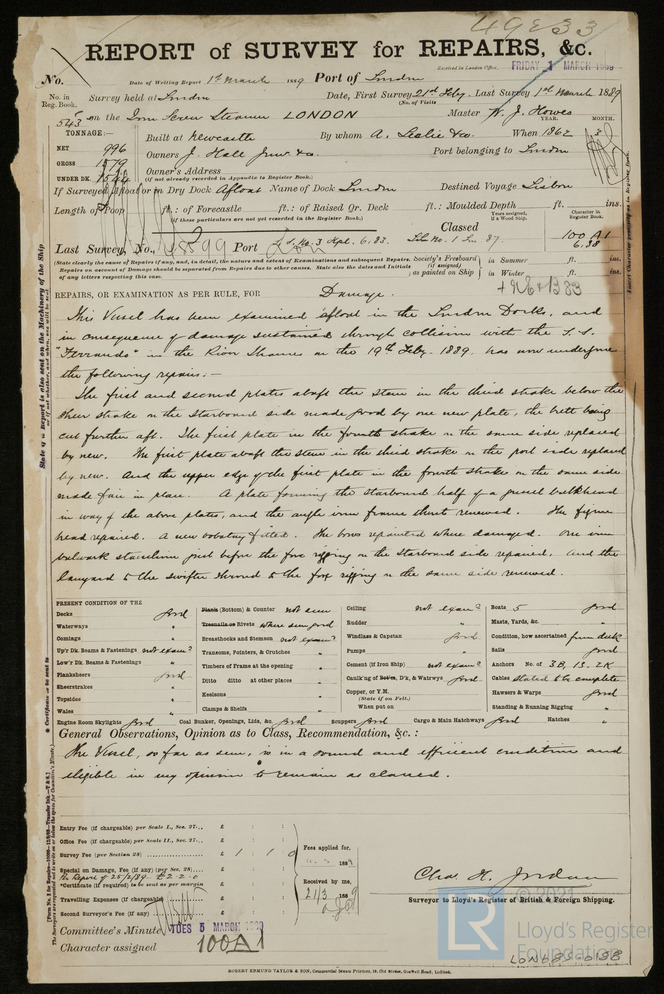 49833
REPORT of SURVEY for REPAIRS, &c.
Received in London Office, FRIDAY 1 MARCH 1889
No. Date of Writing Report 1st March 1889 Port of London
No. in Reg. Book. Survey held at London Date, First Survey 21st Feby. Last Survey 1st March 1889
(No. of Visits
543 on the Iron Screw Steamer LONDON Master W. J. Howes
YEAR. MONTH.
TONNAGE:—
Built at Newcastle By whom A. Leslie & Co. When 1862
NET 996
GROSS
UNDER DK.
Owners J. Hall Junr. & Co. Port belonging to London
Owner's Address
(If not already recorded in Appendix to Register Book.)
If Surveyed Afloat or in Dry Dock Afloat Name of Dock London Destined Voyage Lisbon
Length of Poop ft.: of Forecastle ft.: of Raised Qr. Deck ft.: Moulded Depth ft. ins.
(If these particulars are not yet recorded in the Register Book.)
Years assigned, if a Wood Ship.
Character in Register Book.
Classed 100 A1
6.38
Last Survey, No. 48899 Port S.S. No. 3 Apl. 6.83.
(State clearly the cause of Repairs, if any, and, in detail, the nature and extent of Examinations and subsequent Repairs.
Repairs on account of Damage should be separated from Repairs due to other causes. State also the dates and Initials
of any letters respecting this case.
Society's Freeboard (if assigned) as painted on Ship
in Summer ft. ins.
in Winter ft. ins.
REPAIRS, OR EXAMINATION AS PER RULE, FOR Damage.
This Vessel has been examined afloat in the London Docks, and
in consequence of damage sustained through collision with the S.S.
"Ferrando" in the River Thames on the 19th Feby. 1889. has now undergone
the following repairs:—
The first and second plates abaft the stem in the third strake below the
sheer strake on the starboard side made good by one new plate, the butt being
cut further aft. The first plate in the fourth strake on the same side replaced
by new. The first plate abaft the stem in the third strake on the port side replaced
by new. And the upper edge of the first plate in the fourth strake on the same side
made fair in place. A plate forming the starboard half of a bulkhead
in way of the above plates, and the angle iron frame thereat renewed. The figure
head repaired. A new bobstay fitted. The bows repainted where damaged. One iron
bulwark stanchion just before the fore rigging on the starboard side repaired, and the
lanyard to the swifter shroud to the fore rigging on the same side renewed.
PRESENT CONDITION OF THE
Decks good
Waterways "
Comings "
Up'r Dk. Beams & Fastenings not exam?
Low'r Dk. Beams & Fastenings "
Planksheers good
Sheerstrakes "
Topsides "
Wales "
Engine Room Skylights good
Plank (Bottom) & Counter not seen
Treenails or Rivets where seen good
Breasthooks and Stemson not exam?
Transoms, Pointers, & Crutches "
Timbers of Frame at the opening "
Ditto ditto at other places "
Keelsons "
Clamps & Shelfs "
Coal Bunker, Openings, Lids, &c. good
Ceiling not exam?
Rudder "
Windlass & Capstan good
Pumps "
Cement (if Iron Ship) not exam?
Caulk'ng of Bot'm, D'k, & Watrwys good
Copper, or Y.M. (State if on Felt.)
When put on
Scuppers good Cargo & Main Hatchways good
Boats 5 good
Masts, Yards, &c. "
Condition, how ascertained from deck
Sails good
Anchors No. of 3B, 1S. 2K
Cables stated to be complete
Hawsers & Warps good
Standing & Running Rigging "
Hatches "
General Observations, Opinion as to Class, Recommendation, &c.:
The Vessel, so far as seen, is in a sound and efficient condition and
eligible in my opinion to remain as classed.
Entry Fee (if chargeable) per Scale I., Sec. 27... £ : :
Office Fee (if chargeable) per Scale II., Sec. 27... £ : :
Survey Fee (per Section 28) £ 1 : 1 : 0
Special on Damage, Fee (if any) (per Sec. 28)... £
Pr Report of 25/2/89 £ 2-2-0
*Certificate (if required) to be sent as per margin
Travelling Expenses (if chargeable) £
Second Surveyor's Fee (if any) £
Fees applied for,
188
Received by me,
21/3 1889
Chas. H. Jordan
Surveyor to Lloyd's Register of British & Foreign Shipping.
Committee's Minute TUES 5 MARCH 1889
Character assigned 100A1
© 2021
LR Lloyd's Register Foundation
LON685-0198
ROBERT EDMUND TAYLOR & SON, Commercial Steam Printers, 19, Old Street, Goswell Road, London.
State if a Report is also sent on the Machinery of the Ship